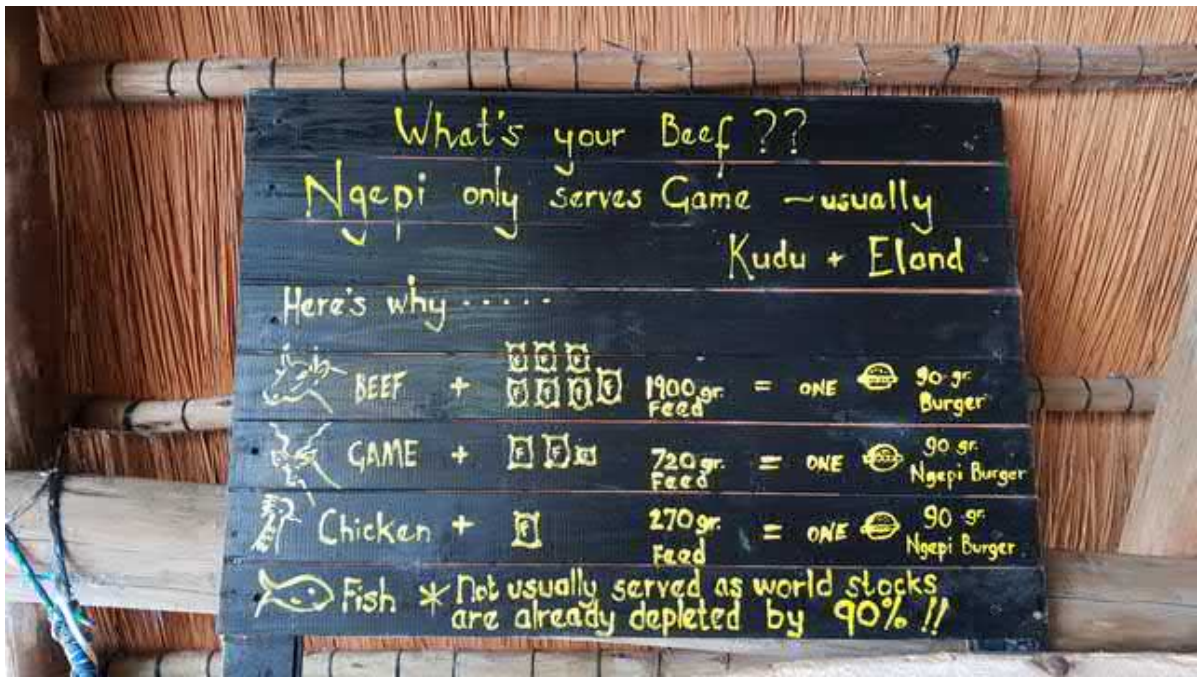 What's your Beef ??
Ngepi only serves Game – usually
Kudu + Eland
Here's why .....
BEEF + F F F F F F F 1900 gr. Feed = ONE 90 gr. Burger
GAME + F F F 720 gr. Feed = ONE 90 gr. Ngepi Burger
Chicken + F 270 gr. Feed = ONE 90 gr. Ngepi Burger
Fish * Not usually served as world stocks
are already depleted by 90% !!